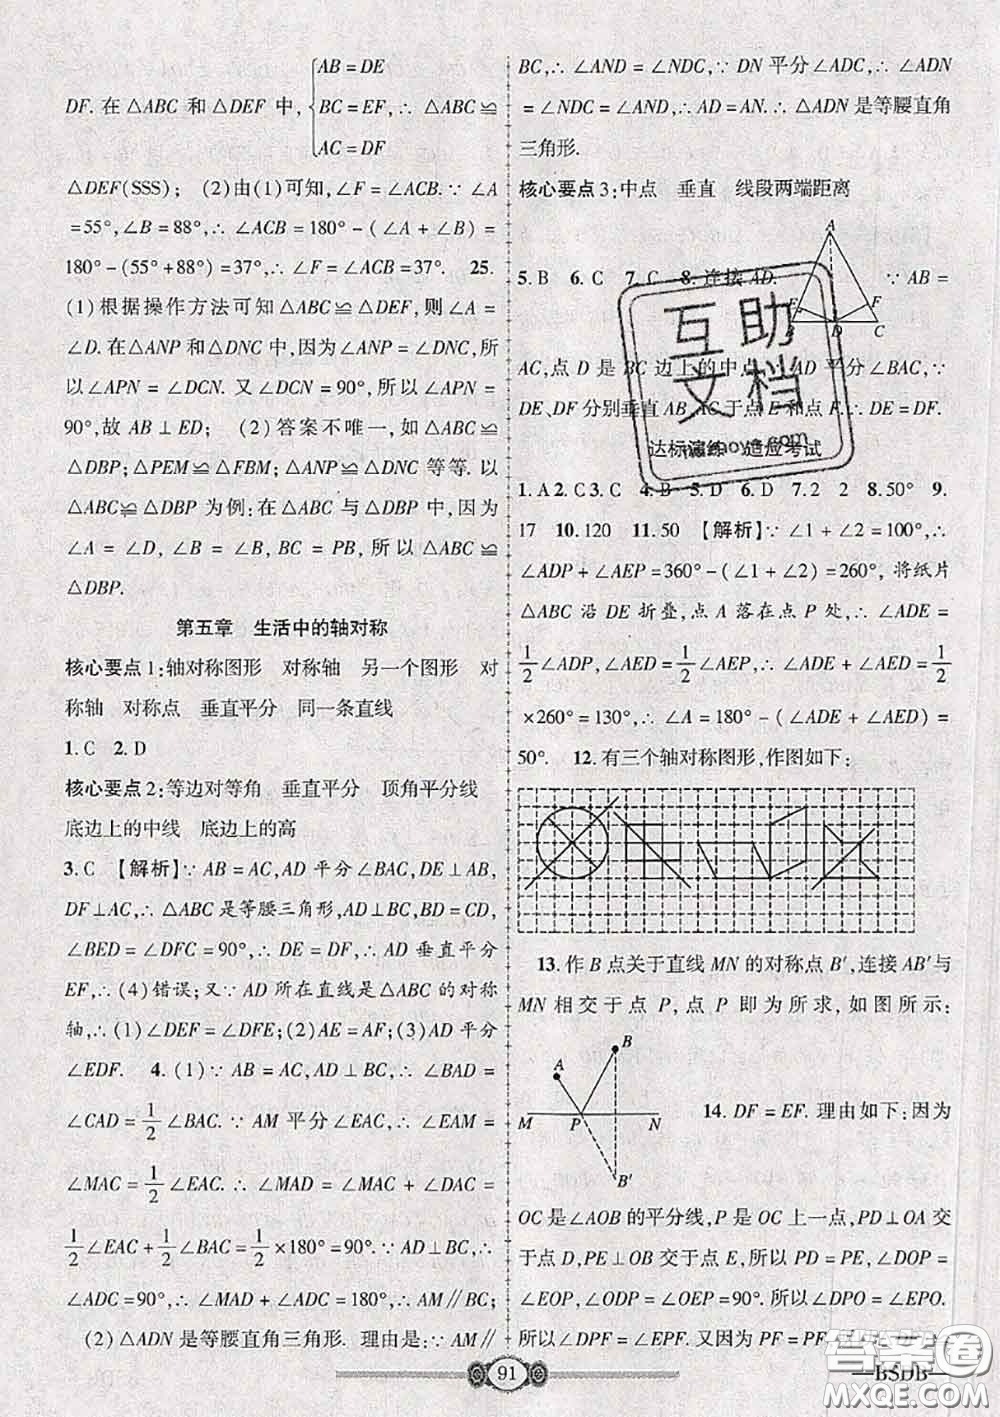 AB = DE
DF. 在 △ABC 和 △DEF 中, BC = EF, ∴ △ABC ≌
AC = DF
△DEF(SSS); (2)由(1)可知, ∠F = ∠ACB. ∵ ∠A
=55°, ∠B = 88°, ∴ ∠ACB = 180° - (∠A + ∠B) =
180° - (55° + 88°) = 37°, ∴ ∠F = ∠ACB = 37°. 25.
(1)根据操作方法可知 △ABC ≌ △DEF, 则 ∠A =
∠D. 在 △ANP 和 △DNC 中, 因为 ∠ANP = ∠DNC, 所
以 ∠APN = ∠DCN. 又 ∠DCN = 90°, 所以 ∠APN =
90°, 故 AB ⊥ ED; (2)答案不唯一, 如 △ABC ≌
△DBP; △PEM ≌ △FBM; △ANP ≌ △DNC 等等. 以
△ABC ≌ △DBP 为例: 在 △ABC 与 △DBP 中, 因为
∠A = ∠D, ∠B = ∠B, BC = PB, 所以 △ABC ≌
△DBP.
第五章 生活中的轴对称
核心要点 1:轴对称图形 对称轴 另一个图形 对
称轴 对称点 垂直平分 同一条直线
1. C 2. D
核心要点 2:等边对等角 垂直平分 顶角平分线
底边上的中线 底边上的高
3. C 【解析】∵ AB = AC, AD 平分 ∠BAC, DE ⊥ AB,
DF ⊥ AC, ∴ △ABC 是等腰三角形, AD ⊥ BC, BD = CD,
∠BED = ∠DFC = 90°, ∴ DE = DF, ∴ AD 垂直平分
EF, ∴ (4)错误; 又∵ AD 所在直线是 △ABC 的对称
轴, ∴ (1)∠DEF = ∠DFE; (2)AE = AF; (3)AD 平分
∠EDF. 4. (1)∵ AB = AC, AD ⊥ BC, ∴ ∠BAD =
∠CAD = 1/2 ∠BAC. ∵ AM 平分 ∠EAC, ∴ ∠EAM =
∠MAC = 1/2 ∠EAC. ∴ ∠MAD = ∠MAC + ∠DAC =
1/2 ∠EAC + 1/2 ∠BAC = 1/2 × 180° = 90°. ∵ AD ⊥ BC, ∴
∠ADC = 90°, ∴ ∠MAD + ∠ADC = 180°, ∴ AM ∥ BC;
(2)△ADN 是等腰直角三角形. 理由是: ∵ AM ∥
BC, ∴ ∠AND = ∠NDC, ∵ DN 平分 ∠ADC, ∴ ∠ADN
= ∠NDC = ∠AND, ∴ AD = AN. ∴ △ADN 是等腰直角
三角形.
核心要点 3:中点 垂直 线段两端距离
A
5. B 6. C 7. C 8. 连接 AD. ∵ AB =
E F
B D C
AC, 点 D 是 BC 边上的中点 AD 平分 ∠BAC, ∵
DE、DF 分别垂直 AB、AC 于点 E 和点 F. ∴ DE = DF.
达标演练 适应考试
1. A 2. C 3. C 4. B 5. D 6. D 7. 2 2 8. 50° 9.
17 10. 120 11. 50 【解析】∵ ∠1 + ∠2 = 100°, ∴
∠ADP + ∠AEP = 360° - (∠1 + ∠2) = 260°, 将纸片
△ABC 沿 DE 折叠, 点 A 落在点 P 处, ∴ ∠ADE =
1/2 ∠ADP, ∠AED = 1/2 ∠AEP, ∴ ∠ADE + ∠AED = 1/2
×260° = 130°, ∴ ∠A = 180° - (∠ADE + ∠AED) =
50°. 12. 有三个轴对称图形, 作图如下:
13. 作 B 点关于直线 MN 的对称点 B′, 连接 AB′ 与
MN 相交于点 P, 点 P 即为所求, 如图所示:
A B
M P N
B′
14. DF = EF. 理由如下: 因为
OC 是 ∠AOB 的平分线, P 是 OC 上一点, PD ⊥ OA 交
于点 D, PE ⊥ OB 交于点 E, 所以 PD = PE, ∠DOP =
∠EOP, ∠ODP = ∠OEP = 90°. 所以 ∠DPO = ∠EPO.
所以 ∠DPF = ∠EPF. 又因为 PF = PF
互助
文档
答案圈
MXQE.COM
91
BSDB